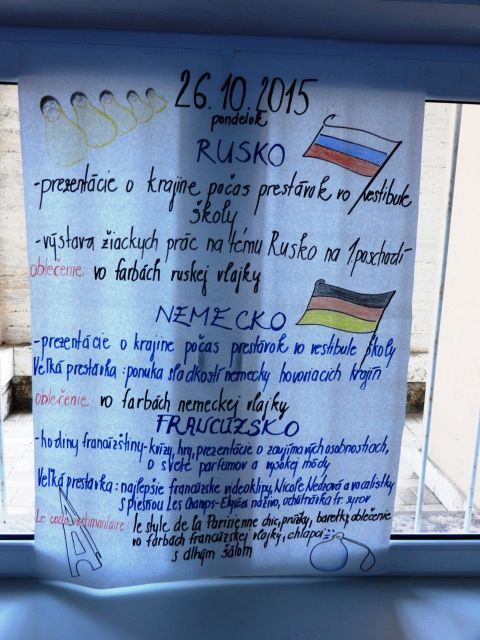 26.10.2015
pondelok
RUSKO
-prezentácie o krajine počas prestávok vo vestibule
školy
-výstava žiackych prác na tému Rusko na 1.poschodí
oblečenie vo farbách ruskej vlajky
NEMECKO
-prezentácie o krajine počas prestávok vo vestibule školy
Veľká prestávka: ponuka sladkostí nemecky hovoriacich krajín
oblečenie vo farbách nemeckej vlajky
FRANCÚZSKO
-hodiny francúzštiny-kvízy, hry, prezentácie o zaujímavých osobnostiach,
o svete parfumov a vysokej módy
Veľká prestávka: najlepšie francúzske videoklipy, Nicole Nedzová a vocalistky
s piesňou Les Champs-Elysées naživo, ochutnávka fr. syrov
Le code vestimentaire: le style de la Parisienne chic, prúžky, baretky, oblečenie
vo farbách francúzskej vlajky, chlapci
s dlhým šálom